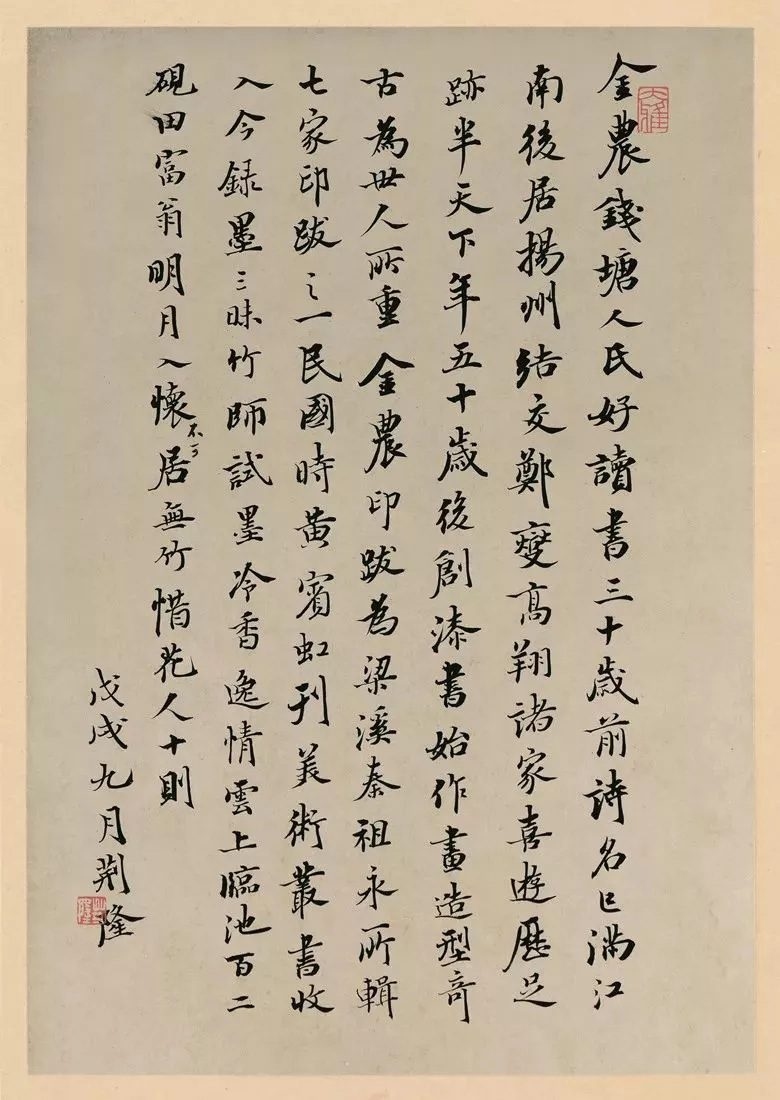 金農錢塘人氏好讀書三十歲前詩名已滿江
南後居揚州結交鄭燮高翔諸家喜遊歷足
跡半天下年五十歲後創漆書始作畫造型奇
古為世人所重金農印跋為梁溪秦祖永所輯
七家印跋之一民國時黃賓虹刊美術叢書收
入今録墨三昧竹師試墨冷香逸情雲上臨池百二
硯田富翁明月入懷不可居無竹惜花人十則
戊戌九月荊隆